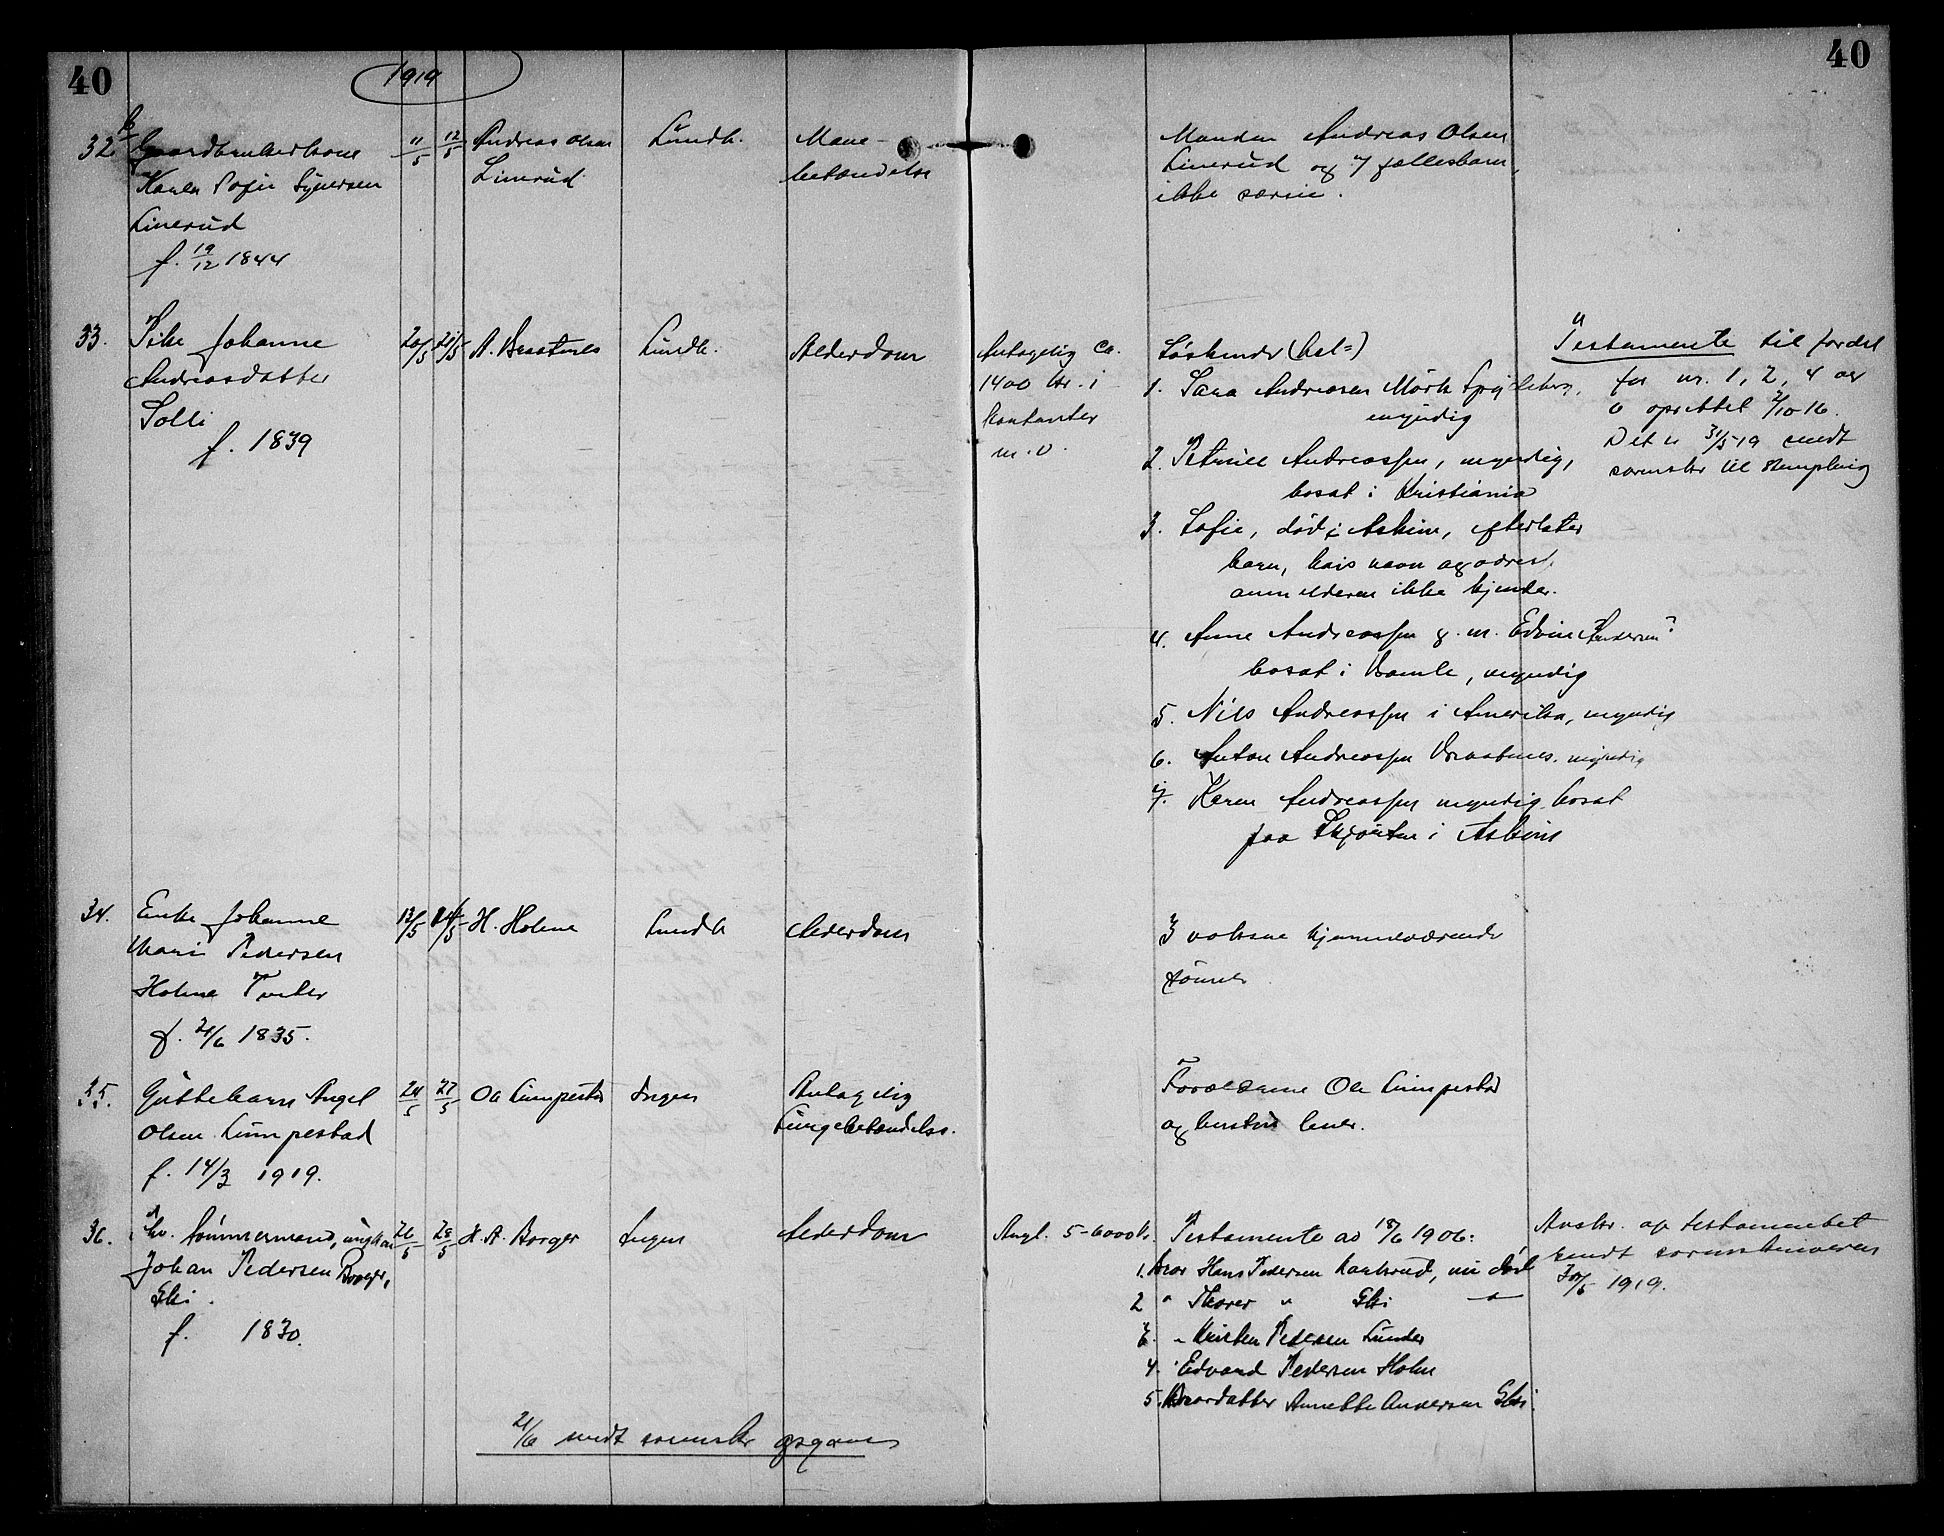 40
1919
40
32
Gaardbrukerkone
Karen Sofie Syversen
Linerud
f. 19/12 1844
11/5
12/5
Andreas Olsen
Linerud
Lundh.
Mave-
betændelse
Manden Andreas Olsen
Linerud og 7 fællesbarn,
ikke særeie.
33.
Pike Johanne
Andreasdatter
Solli
f. 1839
20/5
21/5
A. Braatnes
Lundh.
Alderdom
Antagelig ca.
1400 kr. i
kontanter
m. v.
Søskende (hel=)
1. Sara Andreasen Mörk Spydeberg,
myndig
2. Andreassen, myndig,
bosat i Kristiania
3. Sofie, död i Askim, efterlater
barn, hvis navn og adres.
anmelderen ikke kjender.
4. Anne Andreassen g. m. Edvin Andersen?
bosat i Bamle, myndig
5. Nils Andreassen i Amerika, myndig
6. Anton Andreassen Braatnes. myndig
7. Karen Andreassen myndig bosat
paa i Askim
Testamente til fordel
for nr. 1, 2, 4 og
6 oprettet 2/10-16.
Det er 31/5-19 sendt
sorenskr til stempling
34.
Enke Johanne
Mari Pedersen
Holme Tveter
f. 21/6 1835.
13/5
H. Holme
Lundh
Alderdom
3 voksne hjemmeværende
sönner
35.
Guttebarn
Olsen Limpestad
f. 14/3 1919.
24/5
27/5
Ole Limpestad
Ingen
Antagelig
Lungebetændelse.
Forældrene Ole Limpestad
og hustru lever.
36.
fhv. tömmermand, ungkar
Johan Pedersen Borger,
Ski.
f. 1830.
26/5
28/5
H. A. Borger
Ingen
Alderdom
Angl. 5-6000 kr.
Testamente av 18/6 1906:
1. bror Hans Pedersen Kaatsrud, nu död
2 " Thorer " Ski "
3. " Kristen Pedersen Lunder
4. " Edvard Pedersen Holm
5. Brordatter Annette Andersen Ski.
Avskr. af testamentet
sendt sorenskriveren
30/5 1919.
21/6 sendt sorenskr opgave